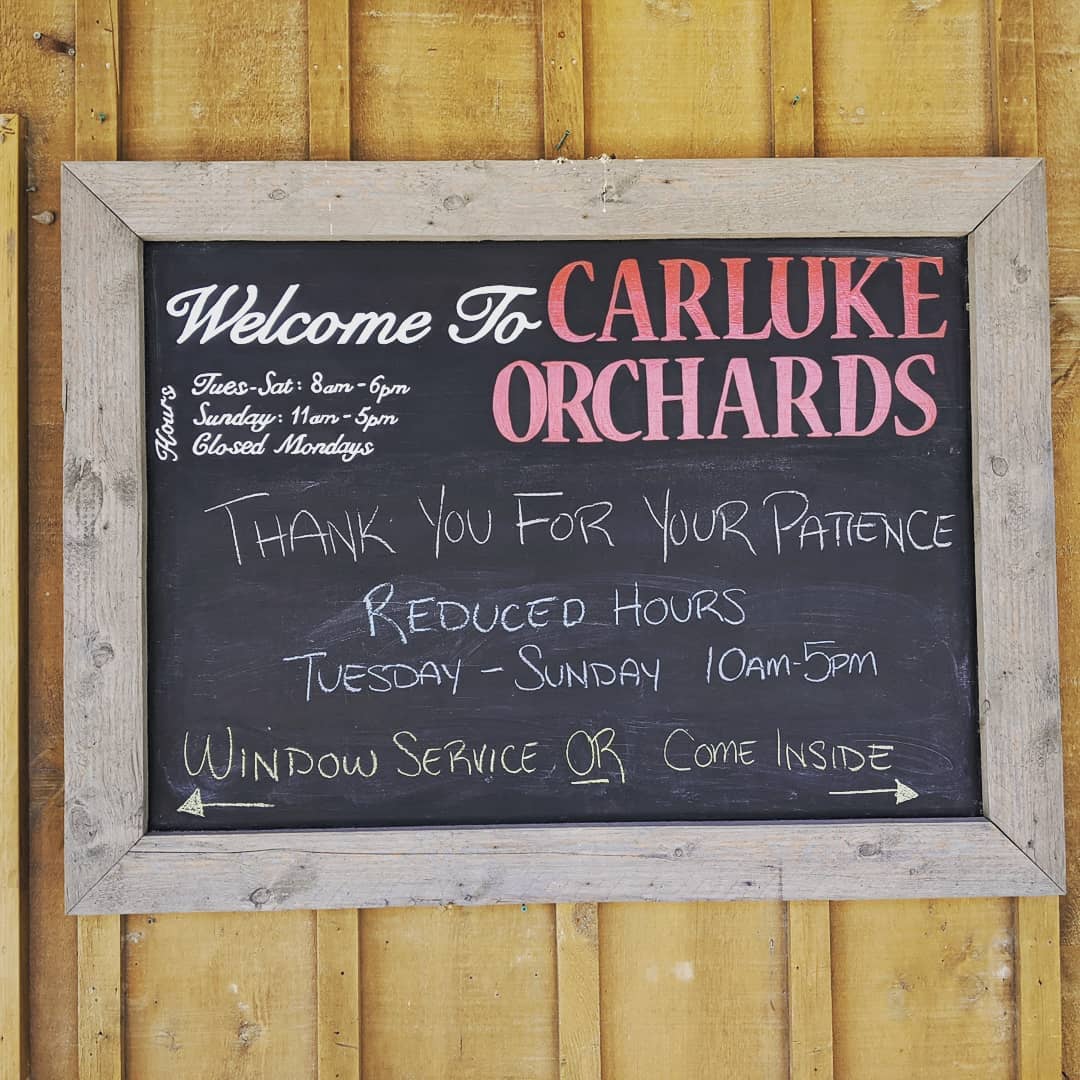 Welcome To CARLUKE
ORCHARDS
Hours
Tues-Sat: 8am-6pm
Sunday: 11am-5pm
Closed Mondays
THANK YOU FOR YOUR PATIENCE
REDUCED HOURS
TUESDAY - SUNDAY 10AM-5PM
WINDOW SERVICE OR COME INSIDE